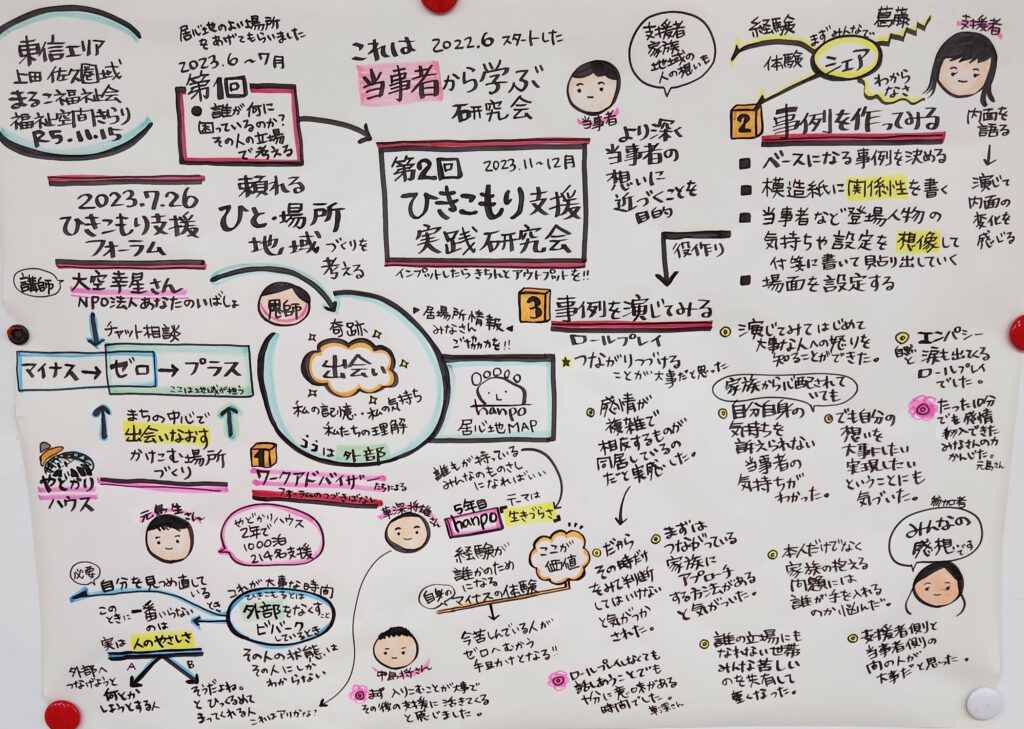 東信エリア
上田 佐久圏域
まるこ福祉会
福祉空間きらり
R5.11.15
居心地のよい場所
をあげてもらいました
2023.6~7月
第1回
誰が何に
困っているのか?
その人の立場
で考える
これは 2022.6 スタートした
当事者から学ぶ
研究会
第2回 2023.11~12月
ひきこもり支援
実践研究会
インプットしたら きちんとアウトプットを!!
支援者
家族
地域の
人の想いを
当事者
より深く
当事者の
想いに
近づくことを
目的
経験
体験
まずみんなで
シェア
葛藤
わから
なさ
支援者
内面を
語る
演じて
内面の
変化を
感じる
2 事例を作ってみる
ベースになる事例を決める
模造紙に関係性を書く
当事者など登場人物の
気持ちや設定を想像して
付箋に書いて貼り出していく
場面を設定する
役作り
2023.7.26
ひきこもり支援
フォーラム
頼れる
ひと・場所
地域づくりを
考える
講師
大空幸星さん
NPO法人あなたのいばしょ
チャット相談
マイナス→ゼロ→プラス
ここは地域が担う
まちの中心で
出会いなおす
かけこむ場所
づくり
やどかり
ハウス
恩師
奇跡
出会い
私の記憶・・私の気持ち
私たちの理解
は外部
居場所情報
みなさん
ご協力を!!
hanpo
居心地MAP
誰もが持っている
みんなのものさし
になればいい
1 ワークアドバイザーたちによる
フォーラムのつづきばなし
元島生さん
やどかりハウス
2年で
1000泊
214名支援
草深将雄さん
5年目
hanpo
テーマは
生きづらさ
経験が
誰かのため
になる
ここが
価値
自身の
マイナスの体験
今苦しんでいる人が
ゼロへむかう
手助けとなる!!
必要
自分を見つめ直している
このとき
ときに一番いらない
のは
実は 人のやさしさ
A
B
外部へ
つなげようと
何とか
しようとする人
そうだよね。
とひっくるめて
まってくれる人
これが大事な時間
ひきこもるとは
外部をなくすこと
ビバーク
しているとき
その人の状態は
その人にしか
わからない
これはアリかな?
中島将さん
まず 入りこむことが大事で
その後の支援に活きてくる
と感じました。
3 事例を演じてみる
ロールプレイ
つながりつづける
ことが大事だと思った
感情が
複雑で
相反するものが
同居しているの
だと実感した。
だから
その時だけ
をみて判断
してはいけない
と気がつか
された。
まずは
つながっている
家族に
アプローチ
する方法がある
と気がついた。
演じてみてはじめて
大事な人への怒りを
知ることができた。
家族から心配されて
いても
自分自身の
気持ちを
訴えられない
当事者の
気持ちが
わかった。
でも自分の
想いを
大事にしたい
実現したい
ということにも
気づいた。
エンパシー
自然
涙も出てくる
ロールプレイ
でした。
たった10分
でも感情
移入できた
みなさんの力
かんじた。
元島さん
参加者
みんなの
感想です
本人だけでなく
家族の抱える
問題には
誰が手を入れる
のか悩んだ。
誰の立場にも
なれない世帯
みんな苦しい
のを共有して
重くなった。
支援者側と
当事者側の
間の人が
大事だと思った。
ロールプレイしなくても
話しあうことでも
十分に意味がある
時間でした。
草深さん